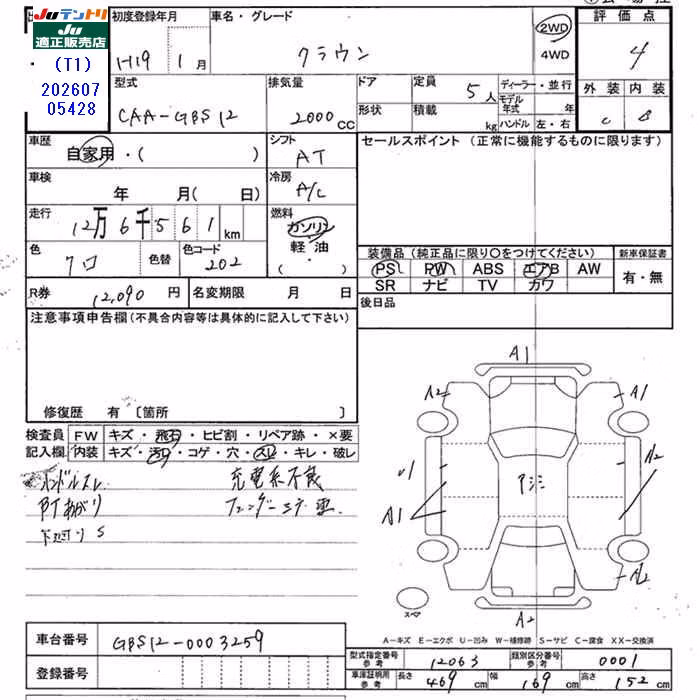 JUテントリ
JU
適正販売店
(T1)
202607
05428
初度登録年月
H19 1月
車名・グレード
クラウン
2WD
4WD
評価点
4
外装 内装
C B
型式
CAA-GBS12
排気量
2000CC
ドア
形状
定員
5人
積載
kg
ディーラー・並行
モデル年式 年
ハンドル 左・右
車歴
自家用・( )
シフト
AT
車検
年 月(日)
冷房
A/C
走行
12万6千561km
燃料
ガソリン
軽・油
( )
色
クロ
色替
色コード
202
セールスポイント(正常に機能するものに限ります)
装備品(純正品に限り○をつけてください)
PS PW ABS エアB AW
SR ナビ TV カワ
新車保証書
有・無
後日品
R券
12,090円
名変期限 月 日
注意事項申告欄(不具合内容等は具体的に記入して下さい)
修復歴 有〔箇所 〕
検査員
記入欄
FW キズ・飛石・ヒビ割・リペア跡・×要
内装 キズ・汚れ・コゲ・穴・スレ・キレ・破レ
ハンドルスレ
充電系不良
下廻りS
A1
A2
A1
U1
A2
A1
A2
A2
スペア
A-キズ E-エクボ U-凹み W-補修跡 S-サビ C-腐食 XX-交換済
車台番号
GBS12-0003259
登録番号
型式指定番号
参考
12063
類別区分番号
参考
0001
車庫証明用
参考
長さ 469cm
幅 169cm
高さ 152cm